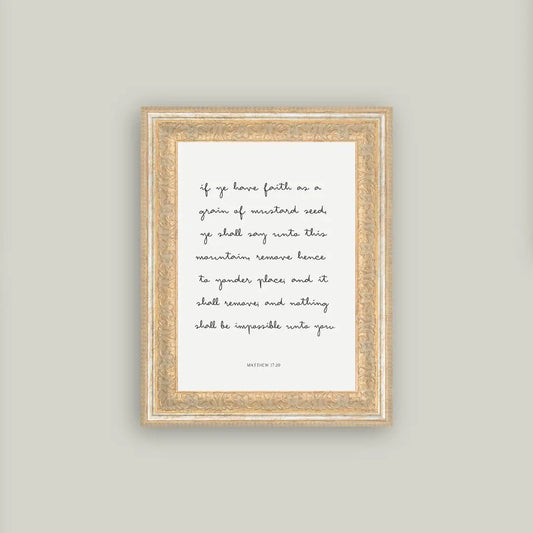 if ye have faith as a
grain of mustard seed,
ye shall say unto this
mountain, remove hence
to yonder place; and it
shall remove; and nothing
shall be impossible unto you.
MATTHEW 17:20